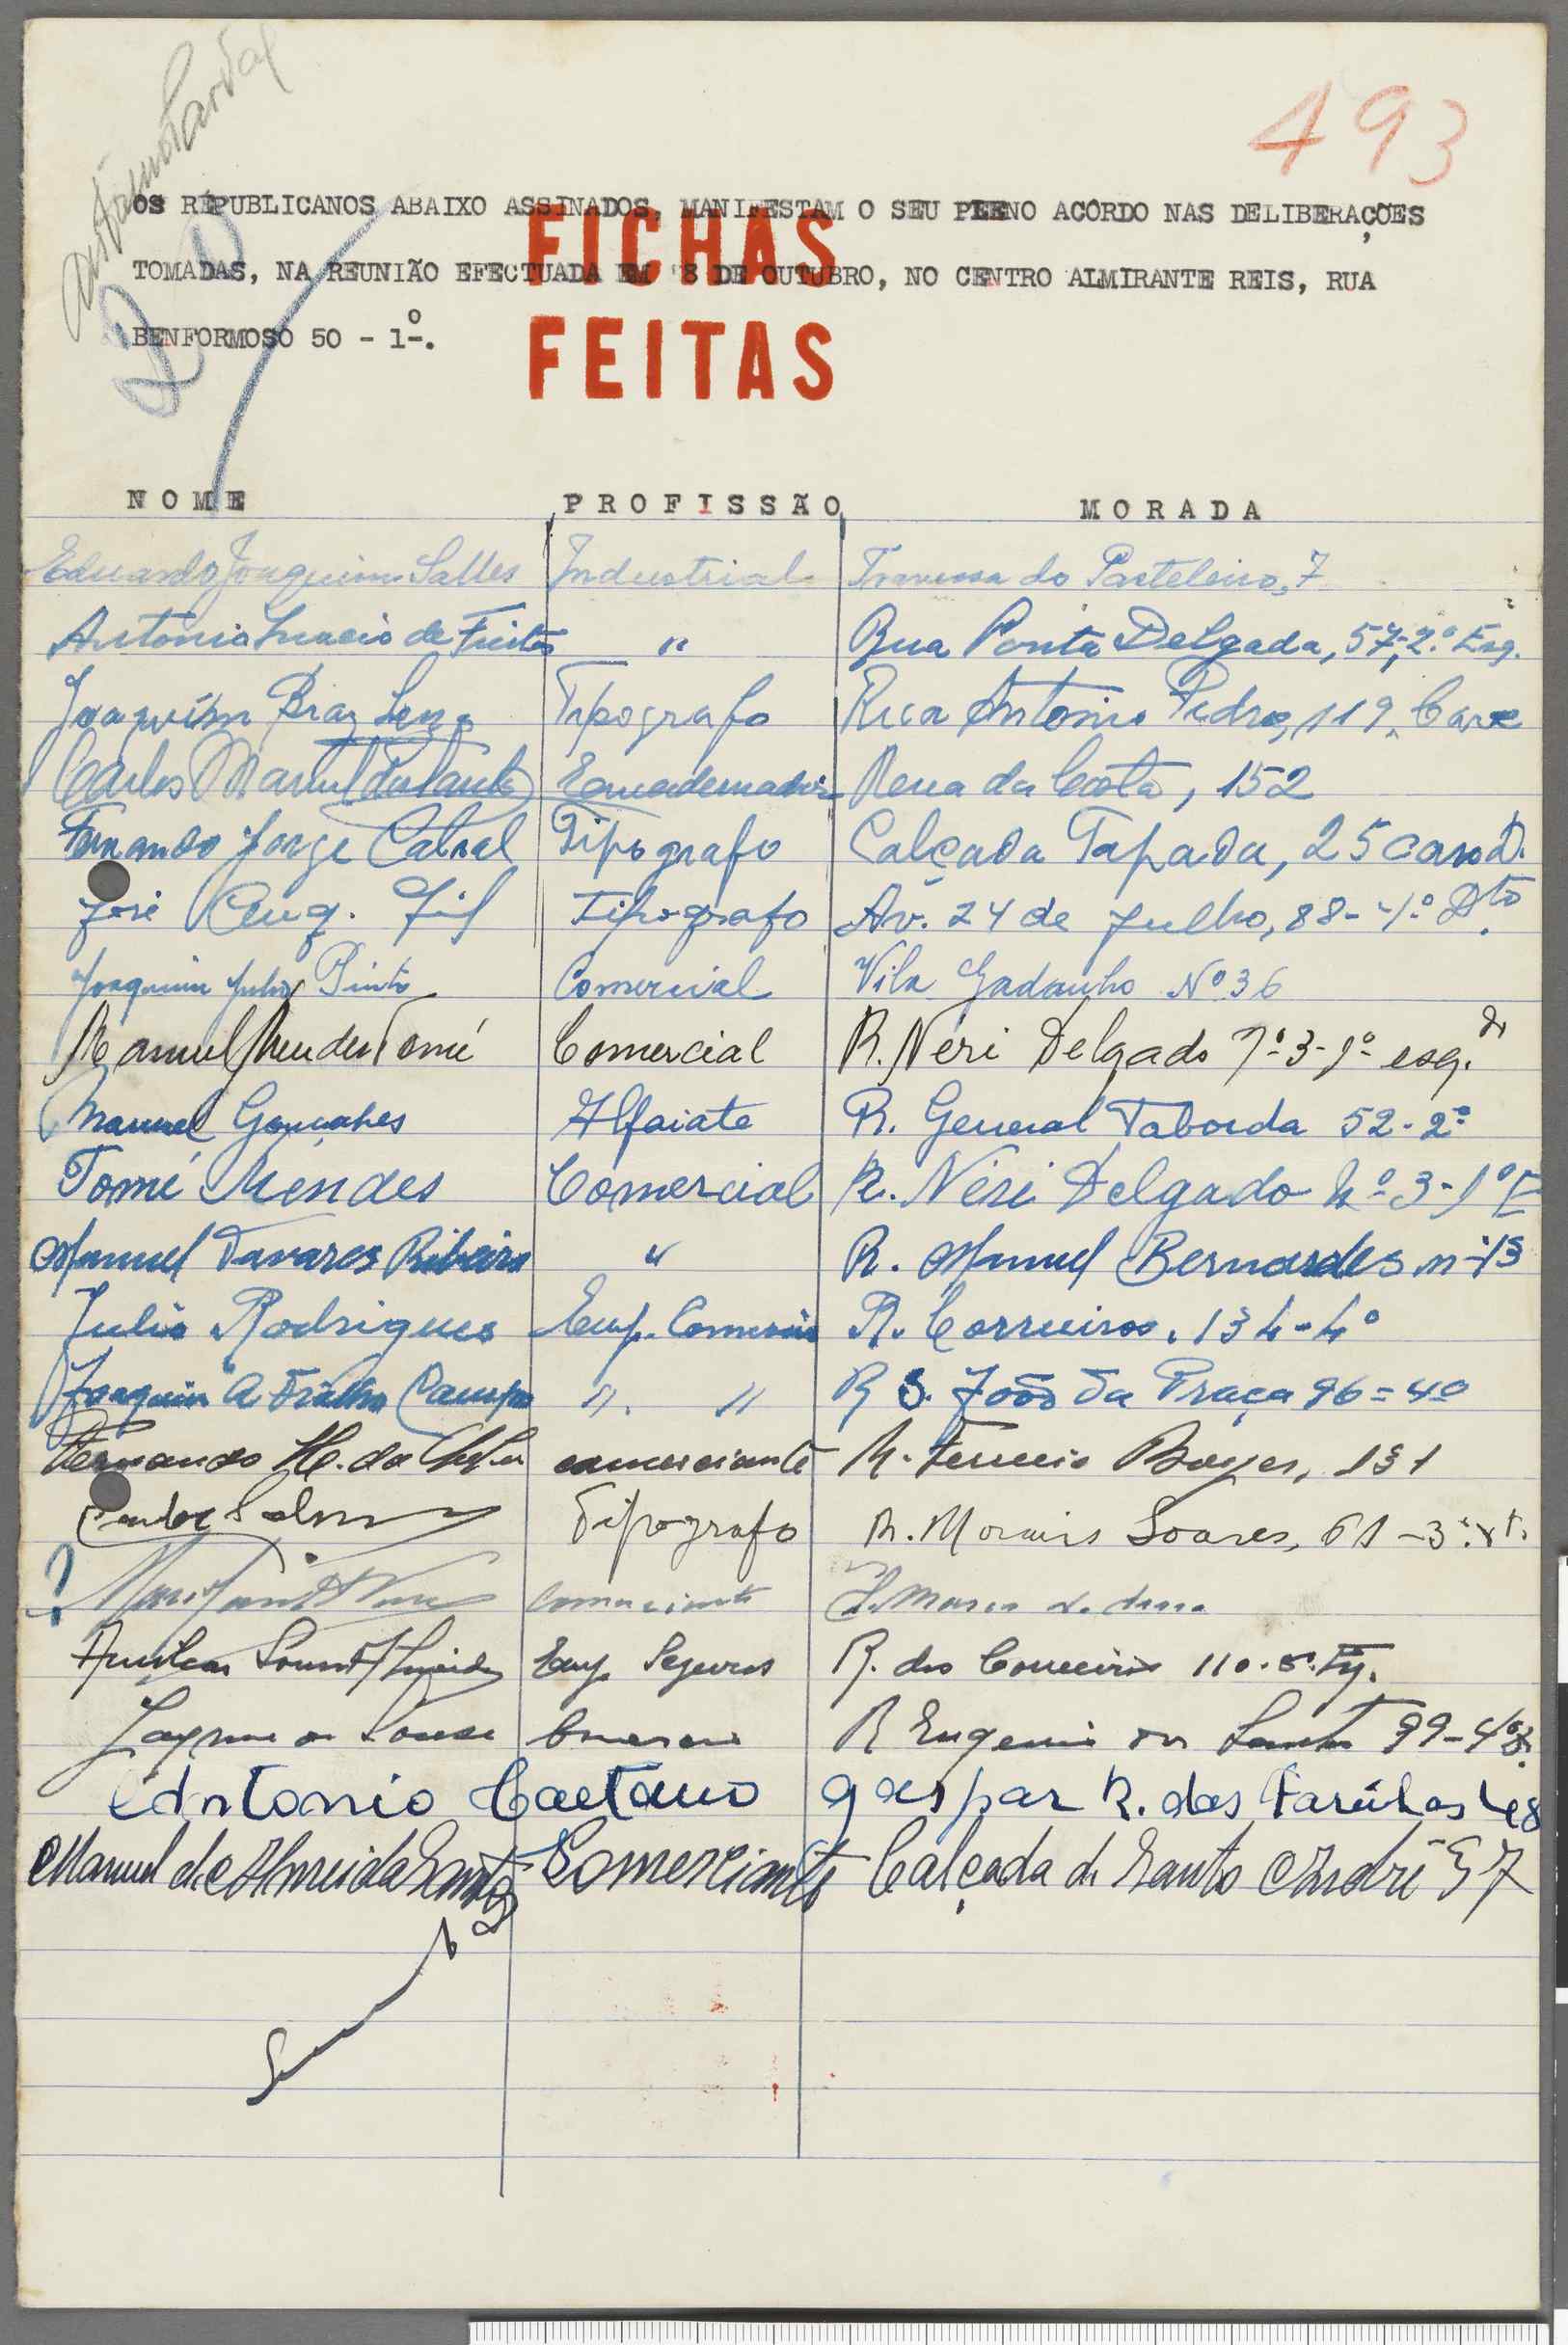 493
OS REPUBLICANOS ABAIXO ASSINADOS, MANIFESTAM O SEU PLENO ACORDO NAS DELIBERAÇÕES
TOMADAS, NA REUNIÃO EFECTUADA EM 8 DE OUTUBRO, NO CENTRO ALMIRANTE REIS, RUA
BENFORMOSO 50 - 1º.
FICHAS
FEITAS
NOME PROFISSÃO MORADA
Eduardo Joaquim Salles Industrial Travessa do Pasteleiro, 7
Antonio Inacio de Freitas " Rua Ponta Delgada, 57, 2.º Esq.
Joaquim Braz Tipografo Rua Antonio Pedro, 119, Cave
Carlos Manuel Encadernador Rua da Costa, 152
Fernando Jorge Cabral Tipografo Calçada Tapada, 25 D.
José Aug. Gil Tipografo Av. 24 de Julho, 88-4.º Dto
Joaquim Julio Pinto Comercial Vila Gadanho Nº 36
Manuel Mendes Tomé Comercial R. Neri Delgado nº 3-1º esq.
Manuel Gonçalves Alfaiate R. General Taborda 52-2º
Tomé Mendes Comercial R. Néri Delgado Nº 3-1º E
Manuel Tavares Ribeiro " R. Manuel Bernardes nº 13
Julio Rodrigues Emp. Comercio R. Correiros, 134-4º
Joaquim A. Campos " " R. S. João da Praça 96=4º
Fernando H. da comerciante R. 131
Carlos Tipografo R. Morais Soares, 61-3º
? comerciante
Emp. Seguros R. dos Correeiros 110.
Jayme de Sousa R Eugenio dos Santos 99-4º
Antonio Caetano gaspar R. das Farinhas 48
Manuel de Almeida Santos Comerciante Calçada de Santo André 57